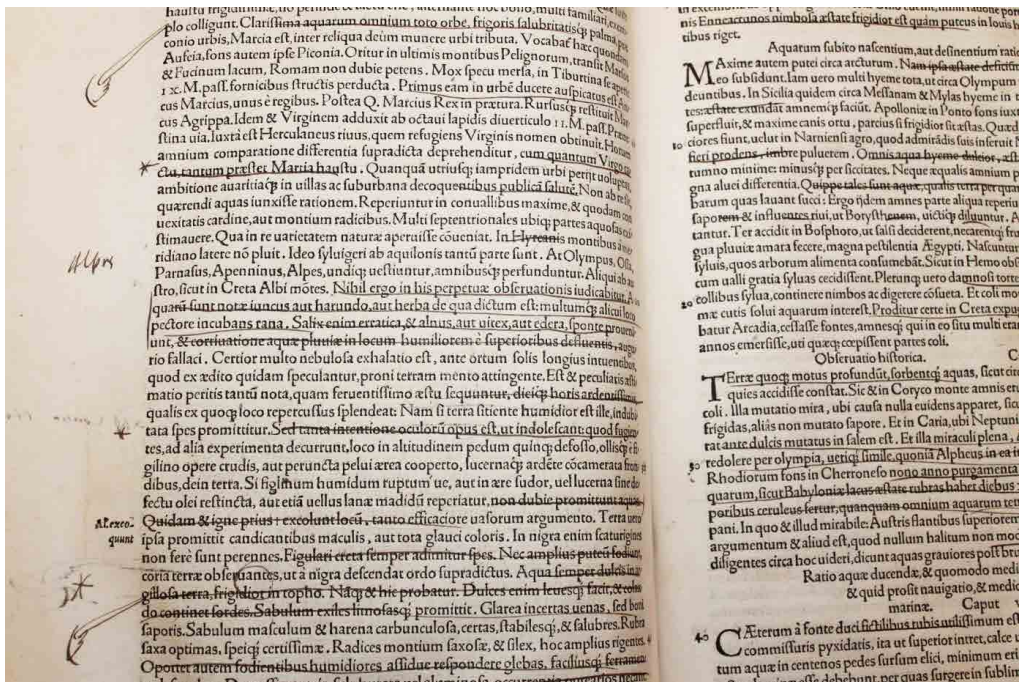 plo colligunt. Clarissima aquarum omnium toto orbe, frigoris salubritatisq; palma
conio urbis, Marcia est, inter reliqua deum munere urbi tributa. Vocabat̃ hæc quondam
Aufeia, fons autem ipse Piconia. Oritur in ultimis montibus Pelignorum, transit Marsos
& Fucinum lacum, Romam non dubie petens. Mox specu mersa, in Tiburtina se aperit
IX. M. pass. fornicibus structis perducta. Primus eam in urbẽ ducere auspicatus est An
cus Marcius, unus è regibus. Postea Q. Marcius Rex in prætura. Rursusq; restituit Mar
cus Agrippa. Idem & Virginem adduxit ab octaui lapidis diuerticulo II. M. pass. Præne
stina uia. Iuxta est Herculaneus riuus, quem refugiens Virginis nomen obtinuit. Horum
amnium comparatione differentia supradicta deprehenditur, cum quantum Virgo ta
ctu, tantum præstet Martia haustu. Quanquã utriusq; iampridem urbi perijt uoluptas,
ambitione auaritiaq; in uillas ac suburbana decoquentibus publicã salutẽ. Non ab re sit
quærendi aquas iunxisse rationem. Reperiuntur in conuallibus maxime, & quodam con
uexitatis cardine, aut montium radicibus. Multi septentrionales ubiq; partes aquosas exi
stimauere. Qua in re uarietatem naturæ aperuisse cõueniat. In Hyrcanis montibus à me
ridiano latere nõ pluit. Ideo syluigeri ab aquilonis tantũ parte sunt. At Olympus, Ossa,
Parnasus, Apenninus, Alpes, undiq; uestiuntur, amnibusq; perfunduntur. Aliqui ab au
Alpes
stro, sicut in Creta Albi mõtes. Nihil ergo in his perpetuæ obseruationis iudicabitur. A
quarũ sunt notæ iuncus aut harundo, aut herba de qua dictum est: multumq; alicui loco
pectore incubans rana. Salix enim erratica, & alnus, aut uitex, aut edera, sponte proueni
unt, & corriuatione aquæ pluuiæ in locum humiliorem è superioribus defluentis, augu
rio fallaci. Certior multo nebulosa exhalatio est, ante ortum solis longius intuentibus,
quod ex ædito quidam speculantur, proni terram mento attingente. Est & peculiaris æsti
matio peritis tantũ nota, quam feruentissimo æstu sequuntur, dieiq; horis ardentissimis,
qualis ex quoq; loco repercussus splendeat: Nam si terra sitiente humidior est ille, indubi
tata spes promittitur. Sed tanta intentione oculorũ opus est, ut indolescant: quod fugien
tes, ad alia experimenta decurrunt, loco in altitudinem pedum quinq; defosso, ollisq; è fi
gilino opere crudis, aut peruncta pelui ærea cooperto, lucernaq; ardẽte cõcamerata fron
dibus, dein terra. Si figlinum humidum ruptum ue, aut in ære sudor, uel lucerna sine de
fectu olei restincta, aut etiã uellus lanæ madidũ reperiatur, non dubie promittunt aquas.
Al. exco-
quunt
Quidam & igne prius † excolunt locũ, tanto efficaciore uasorum argumento. Terra uero
ipsa promittit candicantibus maculis, aut tota glauci coloris. In nigra enim scaturigines
non ferè sunt perennes. Figulari creta semper adimitur spes. Nec amplius puteũ fodiunt,
coria terræ obseruantes, ut à nigra descendat ordo supradictus. Aqua semper dulcis in ar
gillosa terra, frigidior in topho. Nãq; & hic probatur. Dulces enim leuesq; facit, & colan
do continet sordes. Sabulum exiles limosasq; promittit. Glarea incertas uenas, sed boni
saporis. Sabulum masculum & harena carbunculosa, certas, stabilesq;, & salubres. Rubra
saxa optimas, speiq; certissimæ. Radices montium saxosæ, & silex, hoc amplius rigentes.
Oportet autem fodientibus humidiores assidue respondere glebas, faciliusq; ferramen
nis Enneacrunos nimbosa æstate frigidior est quàm puteus in Iouis h
tibus riget.
Aquarum subito nascentium, aut desinentium ratio
MAxime autem putei circa arcturum. Nam ipsa æstate deficiũt
eo subsidunt. Iam uero multi hyeme tota, ut circa Olympum
deuntibus. In Sicilia quidem circa Messanam & Mylas hyeme in t
tes: æstate exundãt amnemq; faciũt. Apolloniæ in Ponto fons iuxt
superfluit, & maxime canis ortu, parcius si frigidior sit æstas. Quæd
10 ciores fiunt, uelut in Narniensi agro, quod admirãdis suis inseruit
fieri prodens, imbre puluerem. Omnis aqua hyeme dulcior, æst
tumno minime: minusq; per siccitates. Neque æqualis amnium p
gna aluei differentia. Quippe tales sunt aquæ, qualis terra per quam
barum quas lauant succi: Ergo ijdem amnes parte aliqua reperiu
saporem & influentes riui, ut Borysthenem, uictiq; diluuntur. A
tantur. Ter accidit in Bosphoro, ut salsi deciderent, necarentq; fru
gua pluuiæ amara fecere, magna pestilentia Ægypti. Nascuntur
syluis, quos arborum alimenta consumebãt. Sicut in Hemo obs
cum ualli gratia syluas cecidissent. Plerunq; uero damnosi torre
20 collibus sylua, continere nimbos ac digerere cõsueta. Et coli mo
mæ cutis solui aquarum interest. Proditur certe in Creta expug
batur Arcadia, cessasse fontes, amnesq; qui in eo situ multi eran
annos emersisse, uti quæq; cœpissent partes coli.
Obseruatio historica.
TErræ quoq; motus profundũt, sorbentq; aquas, sicut circ
quies accidisse constat. Sic & in Coryco monte amnis eru
coli. Illa mutatio mira, ubi causa nulla euidens apparet, sicut
frigidas, aliàs non mutato sapore. Et in Caria, ubi Neptuni
rat ante dulcis mutatus in salem est. Et illa miraculi plena,
30 redolere per olympia, uerìq; simile, quoniã Alpheus in ea in
Rhodiorum fons in Cherroneso nono anno purgamenta
quarum, sicut Babyloniæ lacus æstate rubras habet diebus
poribus ceruleus fertur, quanquam omnium aquarum ten
pani. In quo & illud mirabile: Austris flantibus superiorem
argumentum & aliud est, quod nullum halitum non mod
diligentes circa hoc uideri, dicunt aquas grauiores post bru
Ratio aquæ ducendæ, & quomodo medic
& quid prosit nauigatio, & medic
marinæ. Caput
40 CÆterum à fonte duci fictilibus tubis utilissimum est
commissuris pyxidatis, ita ut superior intret, calce u
tum aquæ in centenos pedes sursum elici, minimum eri